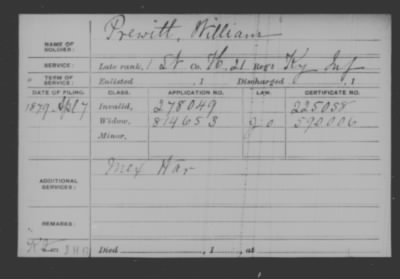 Prewitt, William
NAME OF SOLDIER:
SERVICE: Late rank, 1 St Co. H. 21 Reg't Ky Inf
TERM OF SERVICE: Enlisted , 1 Discharged , 1
DATE OF FILING. CLASS. APPLICATION NO. LAW. CERTIFICATE NO.
1879 Apl 7 Invalid, 278049 225058
Widow, 814653 590006
Minor,
Mex War
ADDITIONAL SERVICES:
REMARKS:
Died , 1 , at